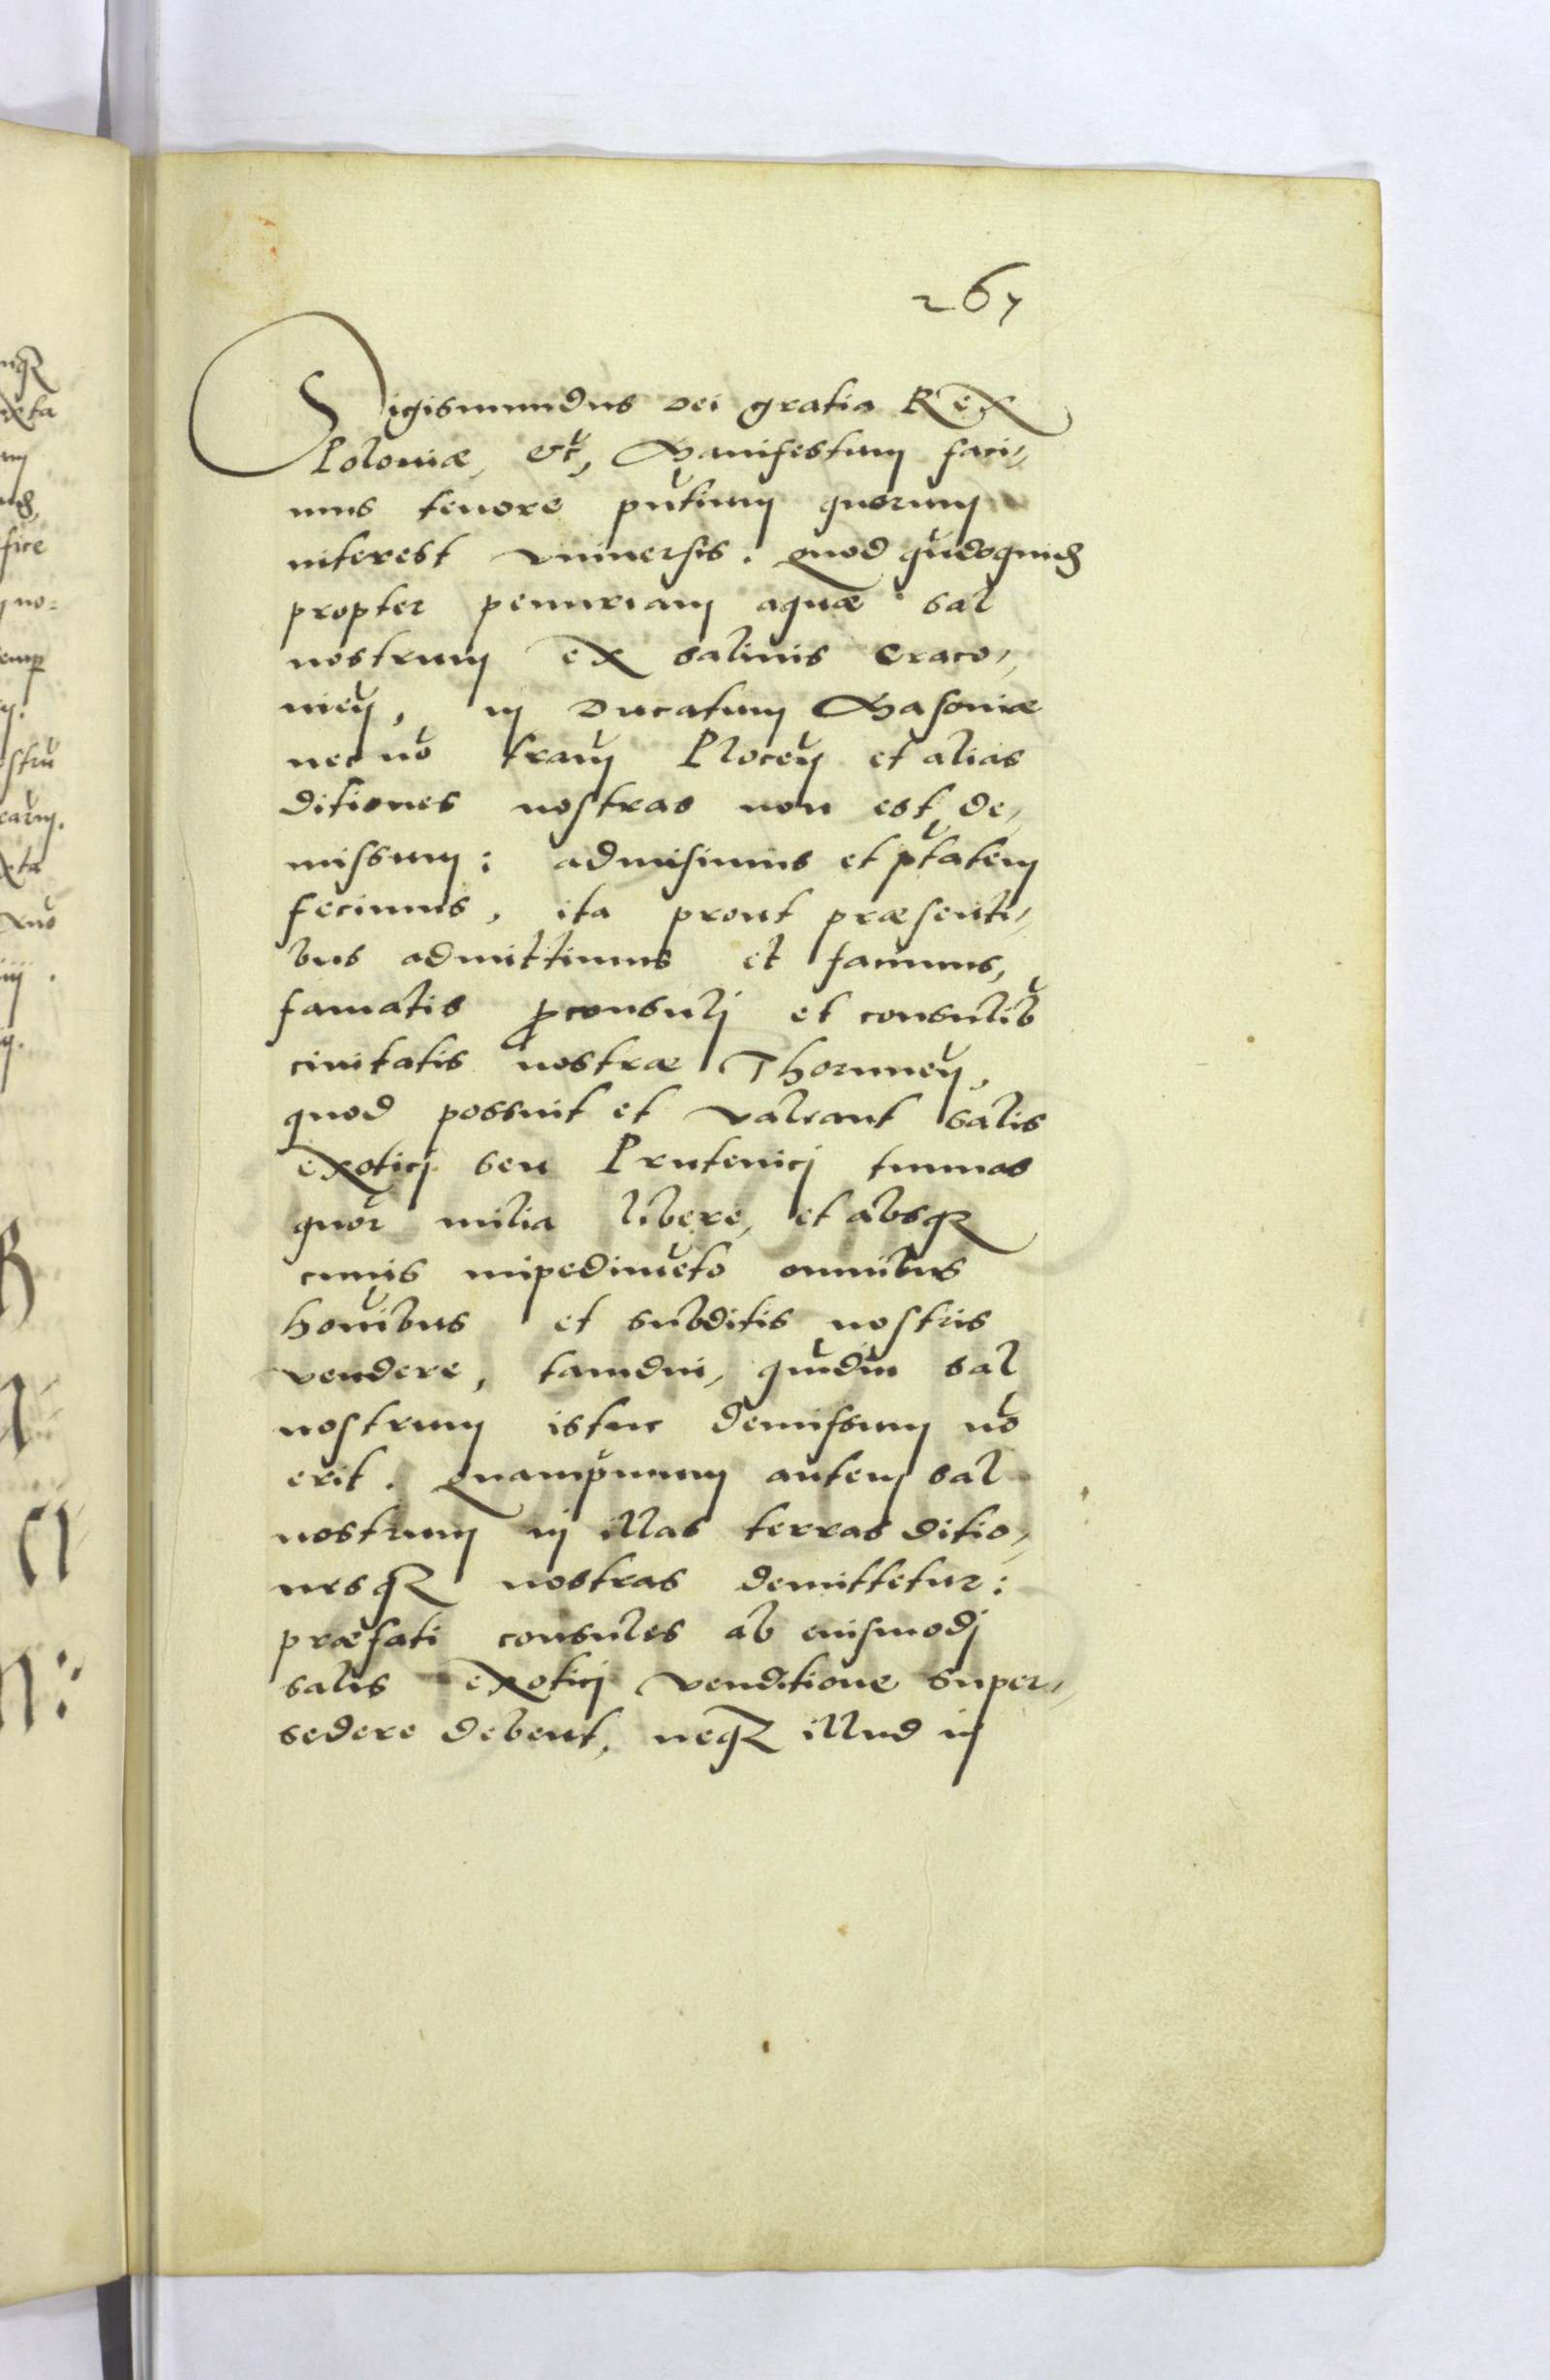 267
Sigismundus Dei gratia Rex
Poloniæ, etc, Manifestum faci,,
mus tenore pñtium quorum
interest vniuersis. quod qũdoquidẽ
propter penuriam aquæ sal
nostrum ex salinis Craco,,
vieñ, in Ducatum Masoviæ
nec nõ trãm Ploceñ et alias
ditiones nostras non est de,,
missum: admisimus et ptãtem
fecimus, ita prout præsenti,,
bus admittimus et facimus,
famatis ꝓconsuli et consulib
civitatis nostræ Thorunieñ,
quod possint et valeant salis
exotici seu Prutenici tunnas
quor milia libere, et absqꝫ
cuiuis impedimẽto omnibus
hoĩbus et subditis nostris
vendere, tamdiu, quãdiu sal
nostrum istuc demissum nõ
erit. quamprimum autem sal
nostrum in illas terras ditio,,
nesqꝫ nostras demittetur:
præfati consules ab eiusmodi
salis exotici venditione super,,
sedere debent, neqꝫ illud in